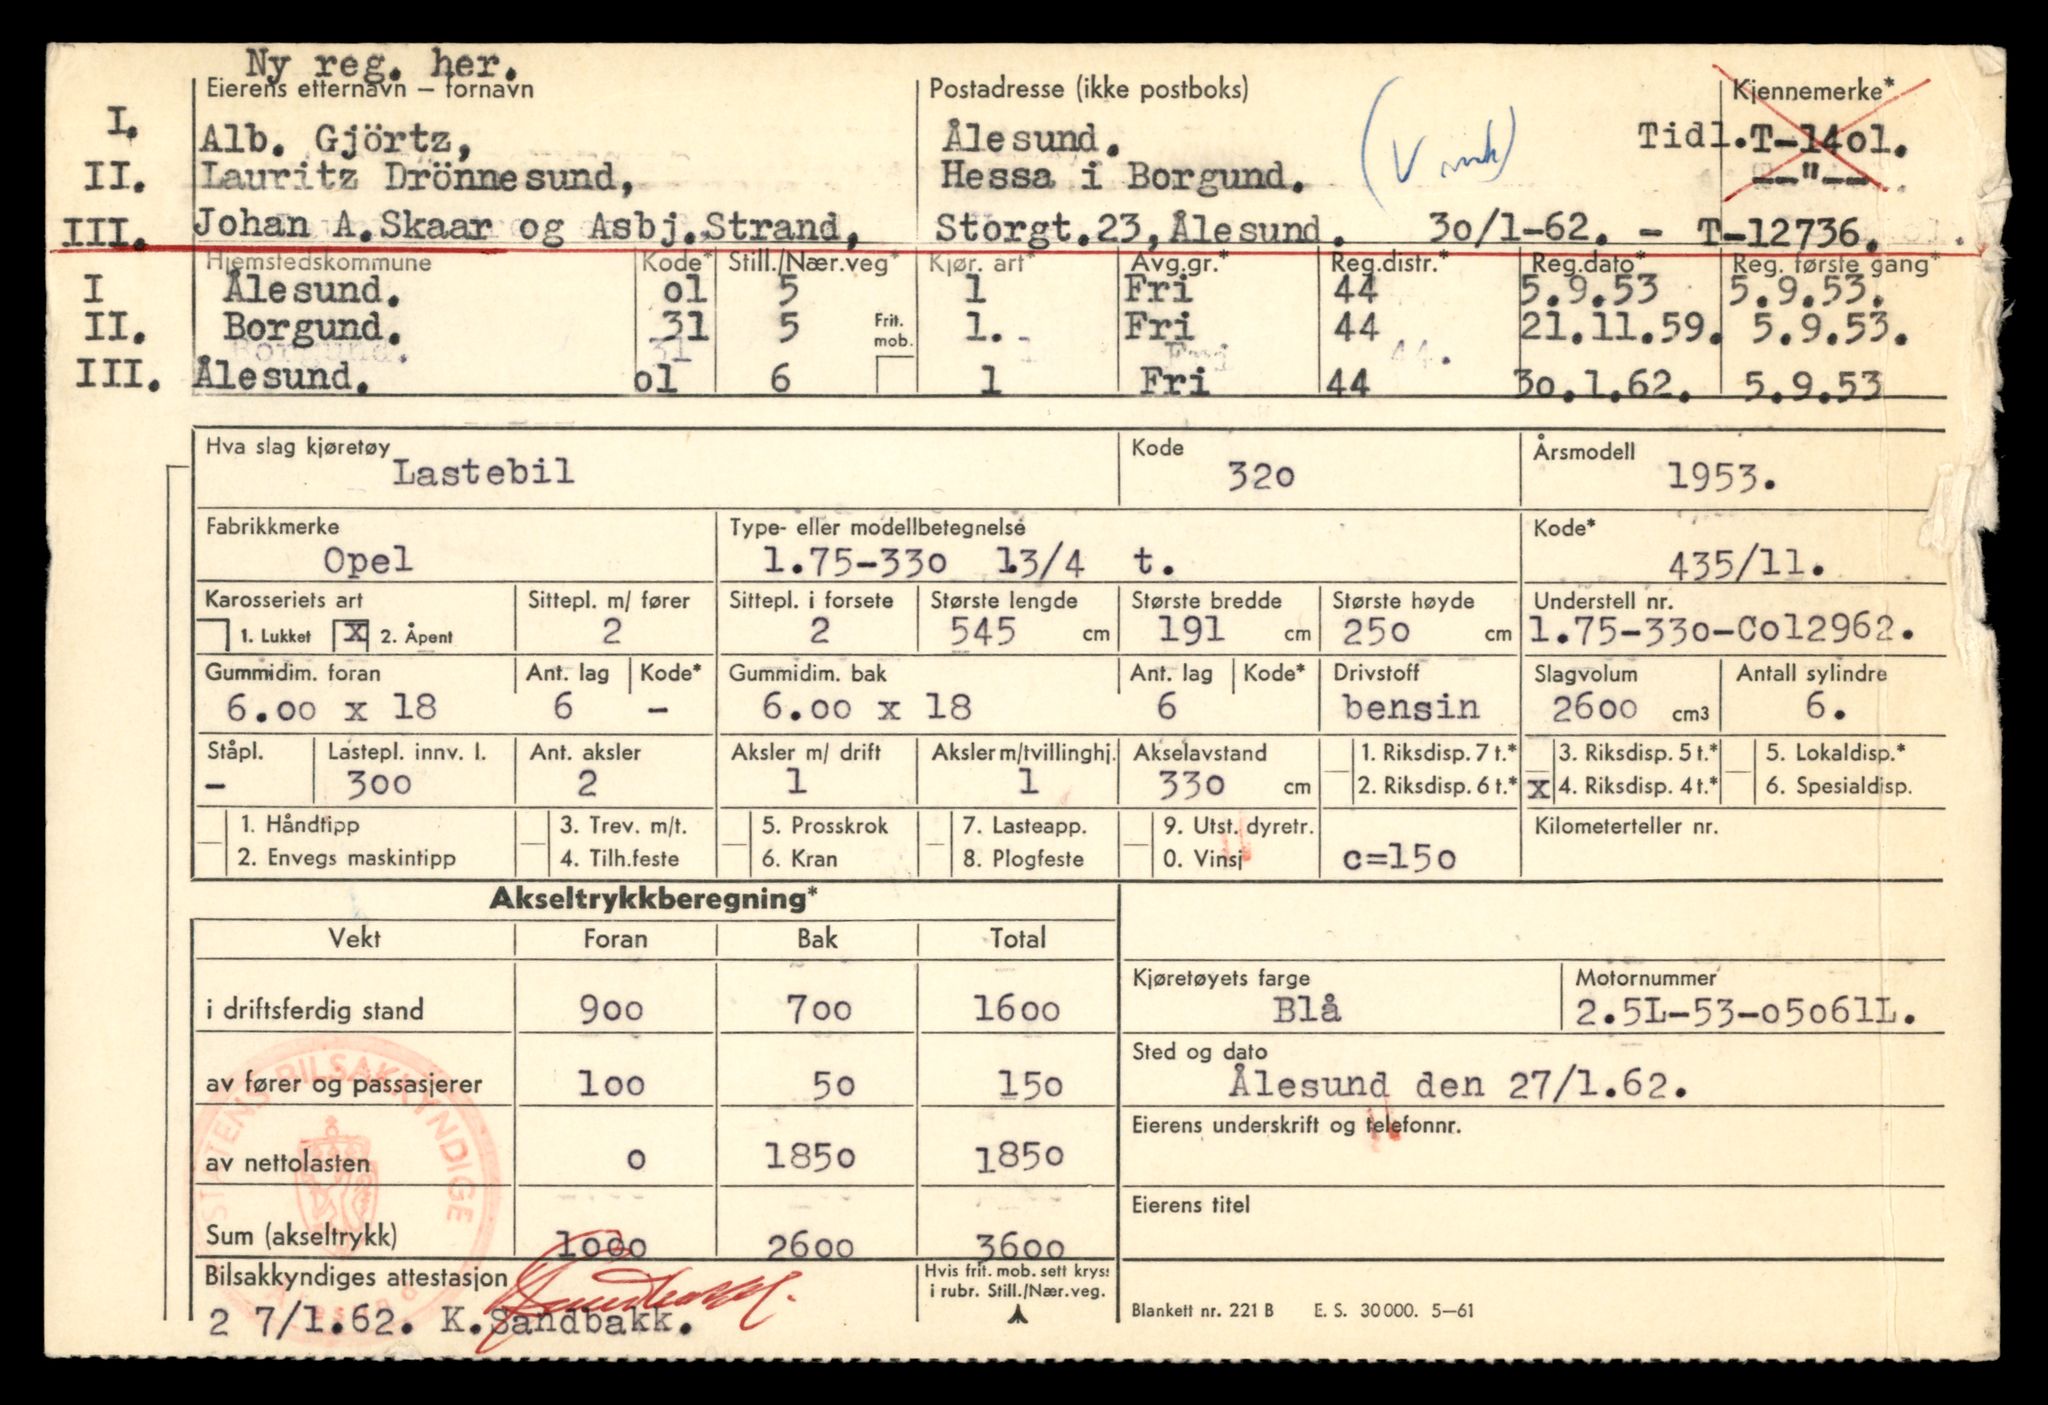 Ny reg. her.
Eierens etternavn – fornavn Postadresse (ikke postboks) Kjennemerke*
I. Alb. Gjörtz, Ålesund. Tidl. T-14o1.
II. Lauritz Drönnesund, Hessa i Borgund. --"--
III. Johan A. Skaar og Asbj. Strand, Storgt. 23, Ålesund. 3o/1-62. - T-12736.
Hjemstedskommune Kode* Still./Nær.veg* Kjør. art* Avg.gr.* Reg.distr.* Reg.dato* Reg. første gang*
I Ålesund. o1 5 1 Fri 44 5.9.53 5.9.53.
II. Borgund. 31 5 Frit. mob. 1. Fri 44 21.11.59. 5.9.53.
III. Ålesund. o1 6 1 Fri 44 3o.1.62. 5.9.53
Hva slag kjøretøy Kode Årsmodell
Lastebil 32o 1953.
Fabrikkmerke Type- eller modellbetegnelse Kode*
Opel 1.75-33o 13/4 t. 435/11.
Karosseriets art Sittepl. m/ fører Sittepl. i forsete Største lengde Største bredde Største høyde Understell nr.
1. Lukket x 2. Åpent 2 2 545 cm 191 cm 25o cm 1.75-33o-Co12962.
Gummidim. foran Ant. lag Kode* Gummidim. bak Ant. lag Kode* Drivstoff Slagvolum Antall sylindre
6.oo x 18 6 - 6.oo x 18 6 bensin 26oo cm3 6.
Ståpl. Lastepl. innv. l. Ant. aksler Aksler m/ drift Aksler m/tvillinghj. Akselavstand 1. Riksdisp. 7 t.* 3. Riksdisp. 5 t.* 5. Lokaldisp.*
- 3oo 2 1 1 33o cm 2. Riksdisp. 6 t.* x 4. Riksdisp. 4 t.* 6. Spesialdisp.
1. Håndtipp 3. Trev. m/t. 5. Prosskrok 7. Lasteapp. 9. Utst. dyretr. Kilometerteller nr.
2. Envegs maskintipp 4. Tilh.feste 6. Kran 8. Plogfeste 0. Vinsj c=15o
Akseltrykkberegning*
Vekt Foran Bak Total
Kjøretøyets farge Motornummer
i driftsferdig stand 9oo 7oo 16oo Blå 2.5L-53-o5o61L.
Sted og dato
av fører og passasjerer 1oo 5o 15o Ålesund den 27/1.62.
Eierens underskrift og telefonnr.
av nettolasten o 185o 185o
Eierens titel
Sum (akseltrykk) 1ooo 26oo 36oo
Bilsakkyndiges attestasjon Hvis frit. mob. sett kryss
i rubr. Still./Nær.veg.
2 7/1.62. K.Sandbakk. Blankett nr. 221 B E. S. 30000. 5–61
STATENS BILSAKKYNDIGE